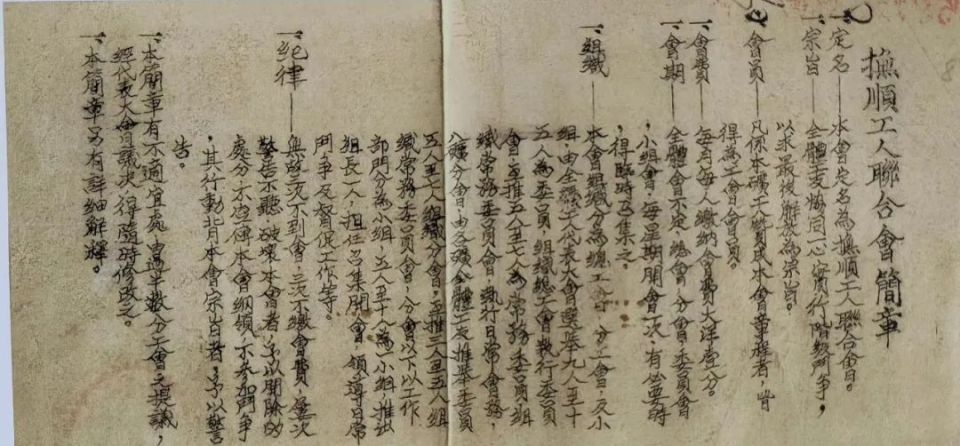 撫順工人聯合會簡章
一、定名——本會定名為撫順工人聯合會。
一、宗旨——全體工友協同一心實行階級鬥爭，
以求最後解放為宗旨。
一、會員——凡係本礦工人贊成本會章程者，皆
得為工會會員。
一、會費——每月每人繳納會費大洋壹分。
一、會期——全體會不定，總會、分會委員會
、小組會，每星期開會一次，有必要時
，得臨時召集之。
一、組織——本會組織分為總工會、分工會，及小
組，由全礦工人代表大會選舉九人至十
五人為委員，組織總工會執行委員
會，互推五人至七人為常務委員，組
織常務委員會，執行日常會務，
各礦分會由各礦全體工友推舉委員
五人至七人組織分會，互推三人至五人組
織常務委員會，分會以下以工作
部門分為小組，五人至十人為一小組，推出
組長一人，担任召集開會，領導日常
鬥爭及督促工作等。
一、紀律——無故三次不到會，三次不繳會費，屢次
警告不聽，破壞本會者，予以開除的
處分，不遵守本會綱領，不參加鬥爭
，其行動背本會宗旨者，予以警
告。
一、本簡章有不適宜處，過半數分工會之提議，
經代表大會議決，得隨時修改之。
一、本簡章另有詳細解釋。